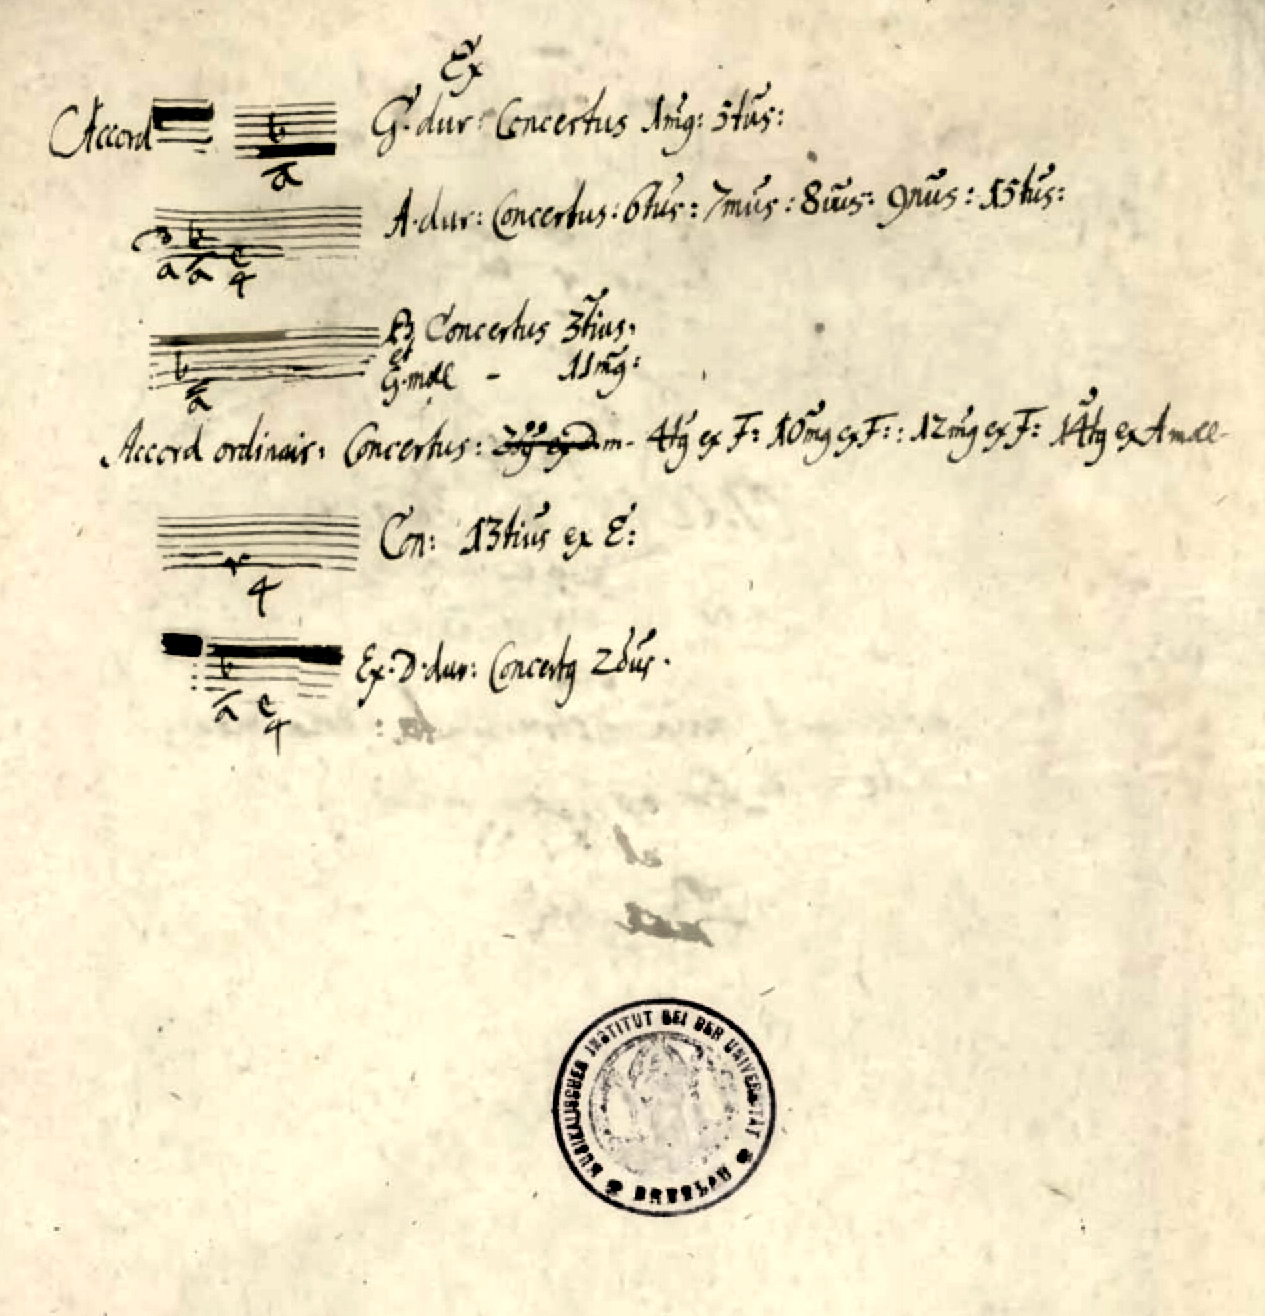 Ex
Accord G. dur: Concertus 1mg: 5tus:
b
a
A. dur: Concertus: 6tus: 7mus: 8vus: 9nus: 15tus:
a a e
4
B Concertus 3tius.
et
G. moll - 11mg:
b
a
Accord ordinair: Concertus: m- 4tg ex F: 10mg ex F:: 12mg ex F: 14tg ex A moll
Con: 13tius ex E:
r
4
Ex. D. dur: Concertg 2dus.
b
a e
4
MUSIKALISCHES INSTITUT BEI DER UNIVERSITÄT BRESLAU